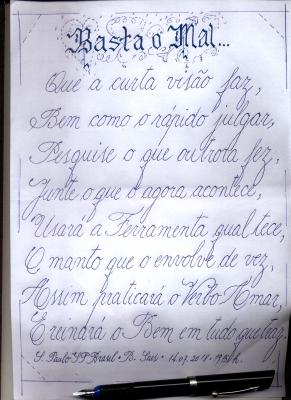 Basta o Mal...
Que a curta visão faz,
Bem como o rápido julgar,
Pesquise o que outrora fez,
Junte o que o agora acontece,
Usará a Ferramenta qual tece,
O manto que o envolve de vez,
Assim praticará o Verbo Amar,
E reinará o Bem em tudo que faz.
S. Paulo-SP Brasil • B.